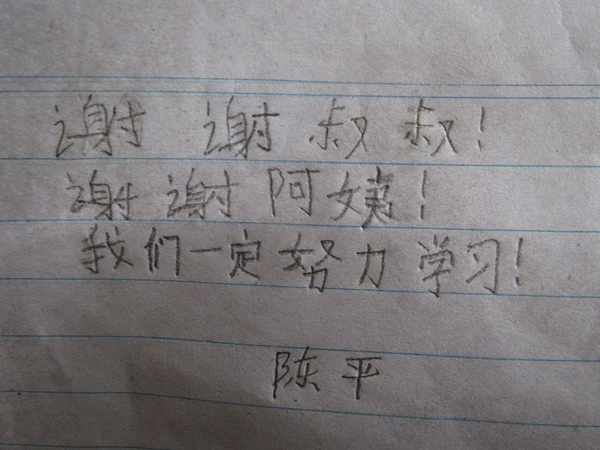 谢谢叔叔!
谢谢阿姨!
我们一定努力学习!
陈平